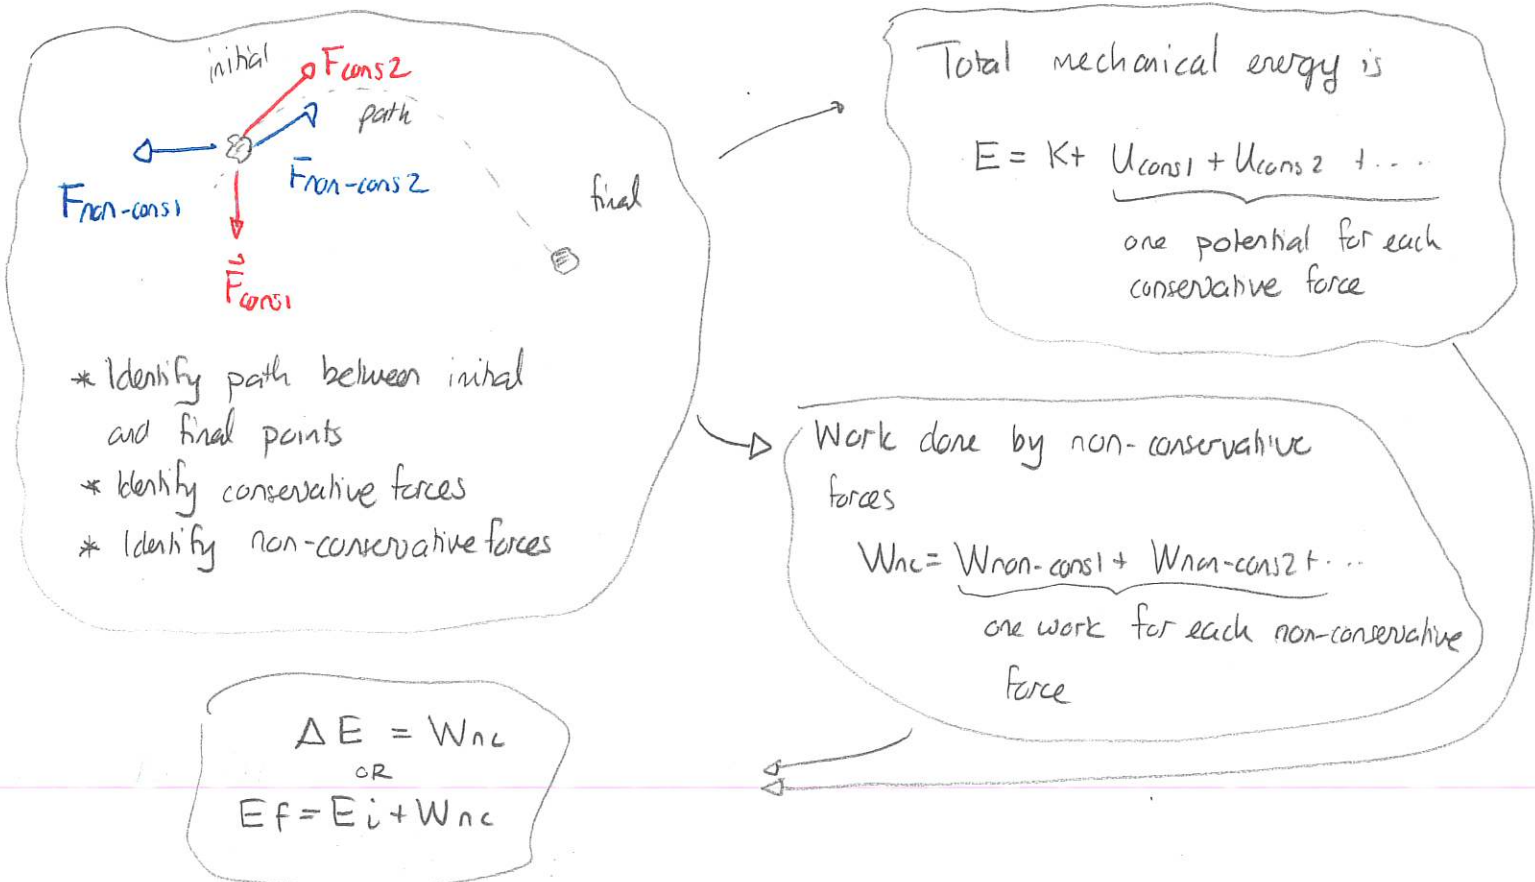 initial
F̄cons2
path
F̄non-cons1
F̄non-cons2
final
F⃗cons1
* Identify path between initial
and final points
* Identify conservative forces
* Identify non-conservative forces
Total mechanical energy is
E = K + Ucons1 + Ucons2 + ....
one potential for each
conservative force
Work done by non-conservative
forces
Wnc = Wnon-cons1 + Wnon-cons2 + ...
one work for each non-conservative
force
ΔE = Wnc
OR
Ef = Ei + Wnc